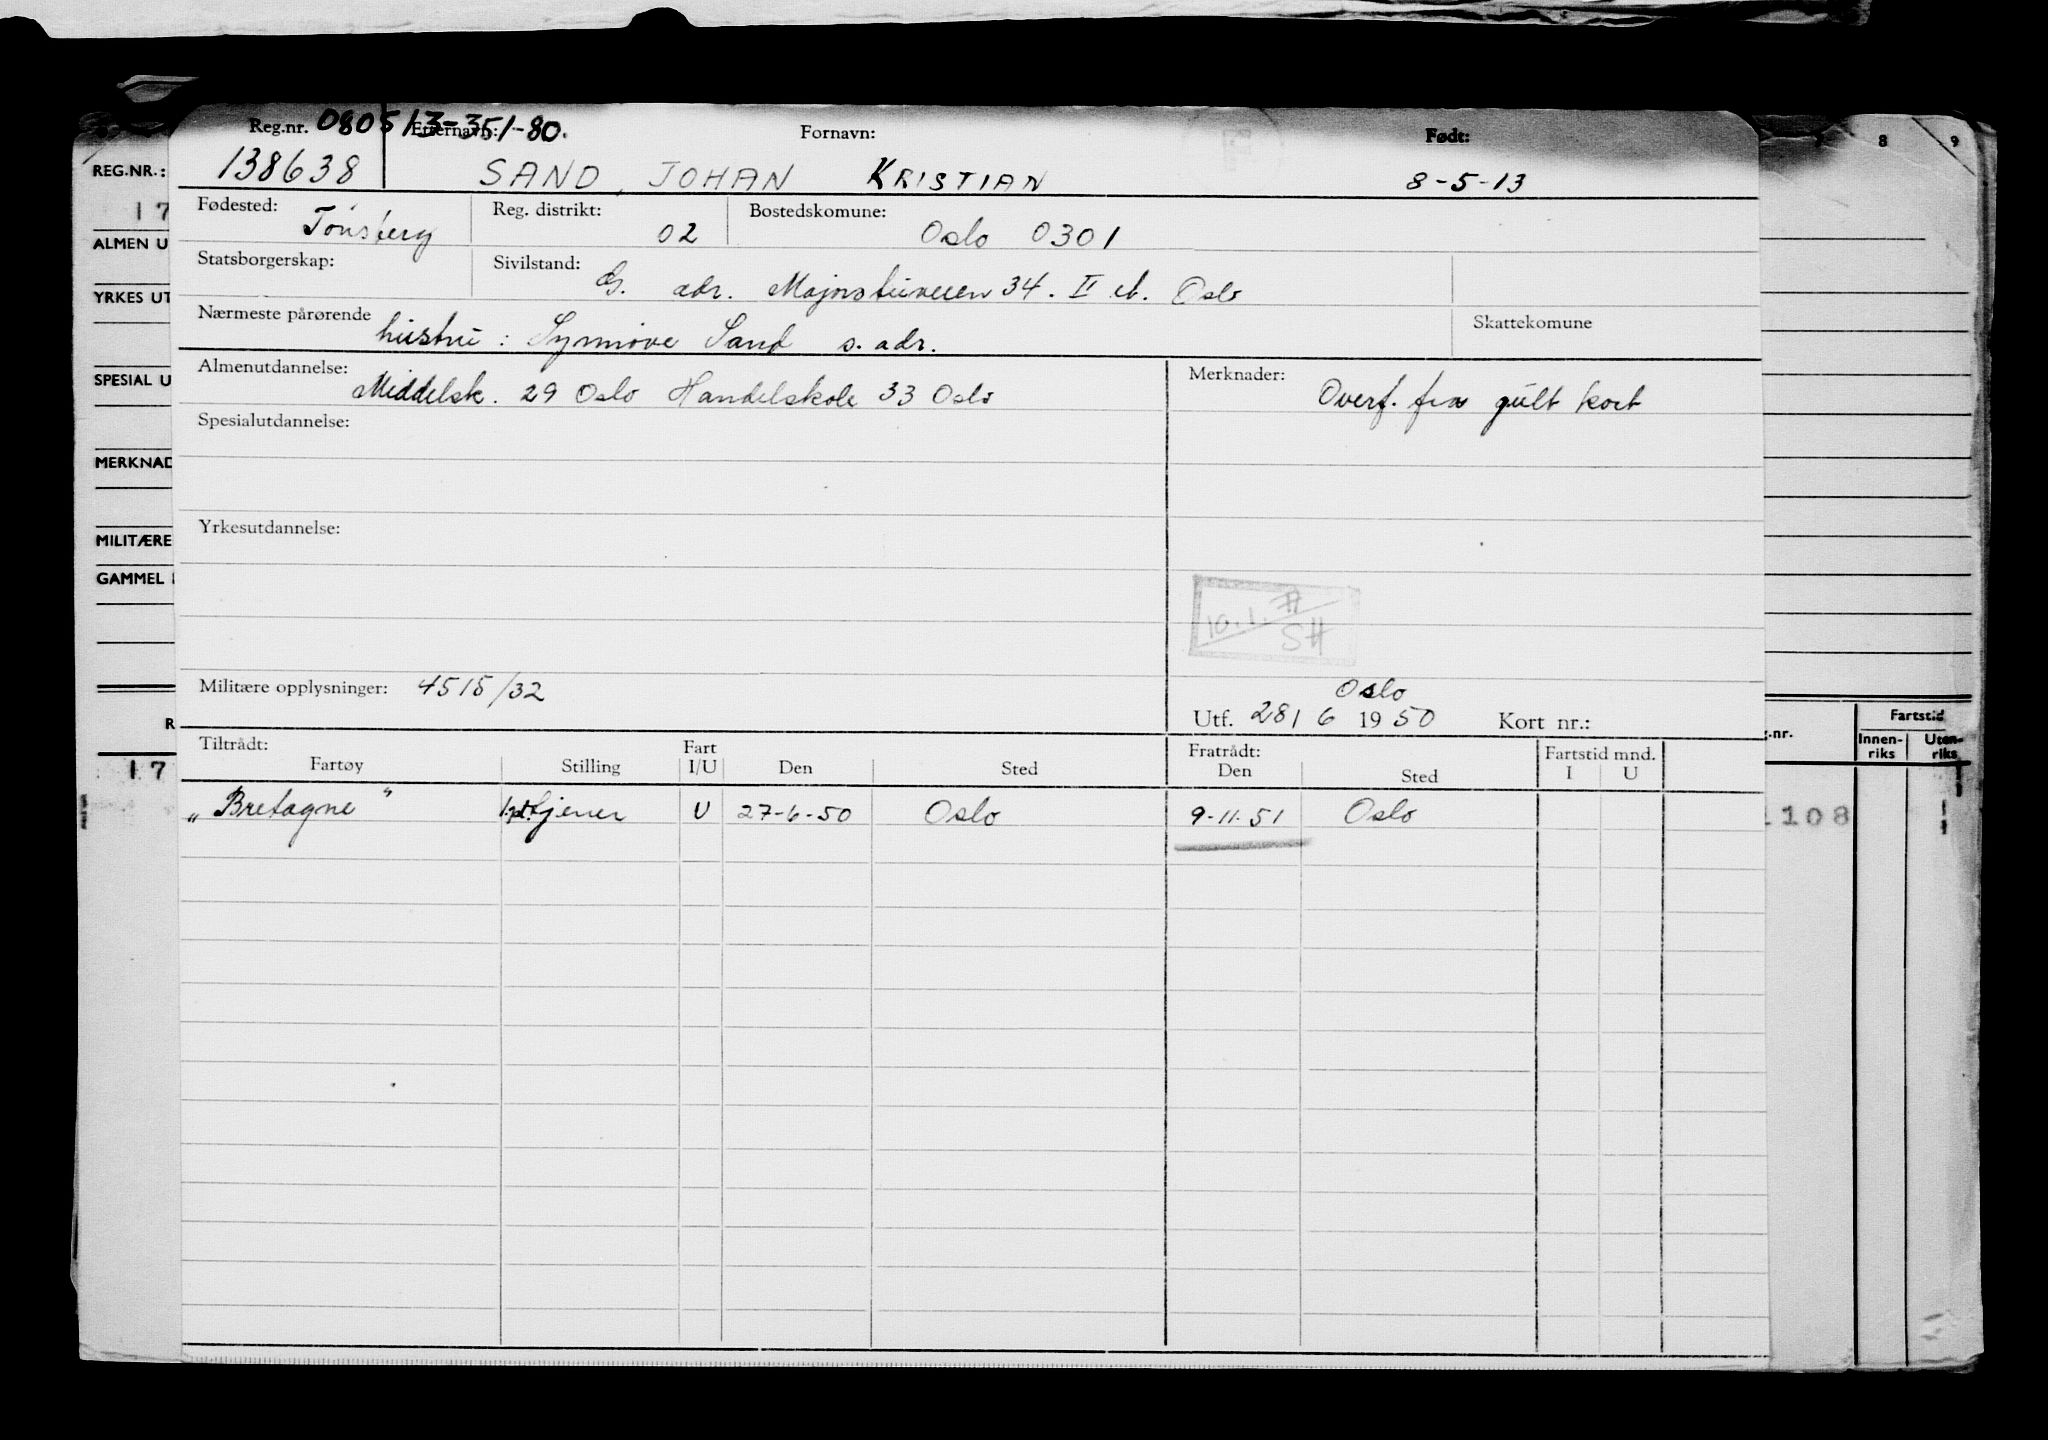 Reg.nr. 080513-351-80. Etternavn: Fornavn: Født: 8 9
REG.NR.: 138638 SAND, JOHAN KRISTIAN 8-5-13
17 Fødested: Tønsberg Reg. distrikt: 02 Bostedskomune: Oslo 0301
ALMEN U Statsborgerskap: Sivilstand: G. adr. Majorstuveien 34. II et. Oslo
YRKES UT Nærmeste pårørende hustru: Synnøve Sand s. adr. Skattekomune
SPESIAL U Almenutdannelse: Middelsk. 29 Oslo Handelskole 33 Oslo Merknader: Overf. fra gult kort
Spesialutdannelse:
MERKNAD
Yrkesutdannelse:
MILITÆRE
GAMMEL
10.1. SH
Militære opplysninger: 4515/32 Oslo
R Utf. 28/6 1950 Kort nr.: .nr. Fartstid
Innen-riks Uten-riks
Tiltrådt: Fratrådt: Fartstid mnd.
Fartøy Stilling Fart I/U Den Sted Den Sted I U
17
"Bretagne" tjener U 27-6-50 Oslo 9-11-51 Oslo 1108